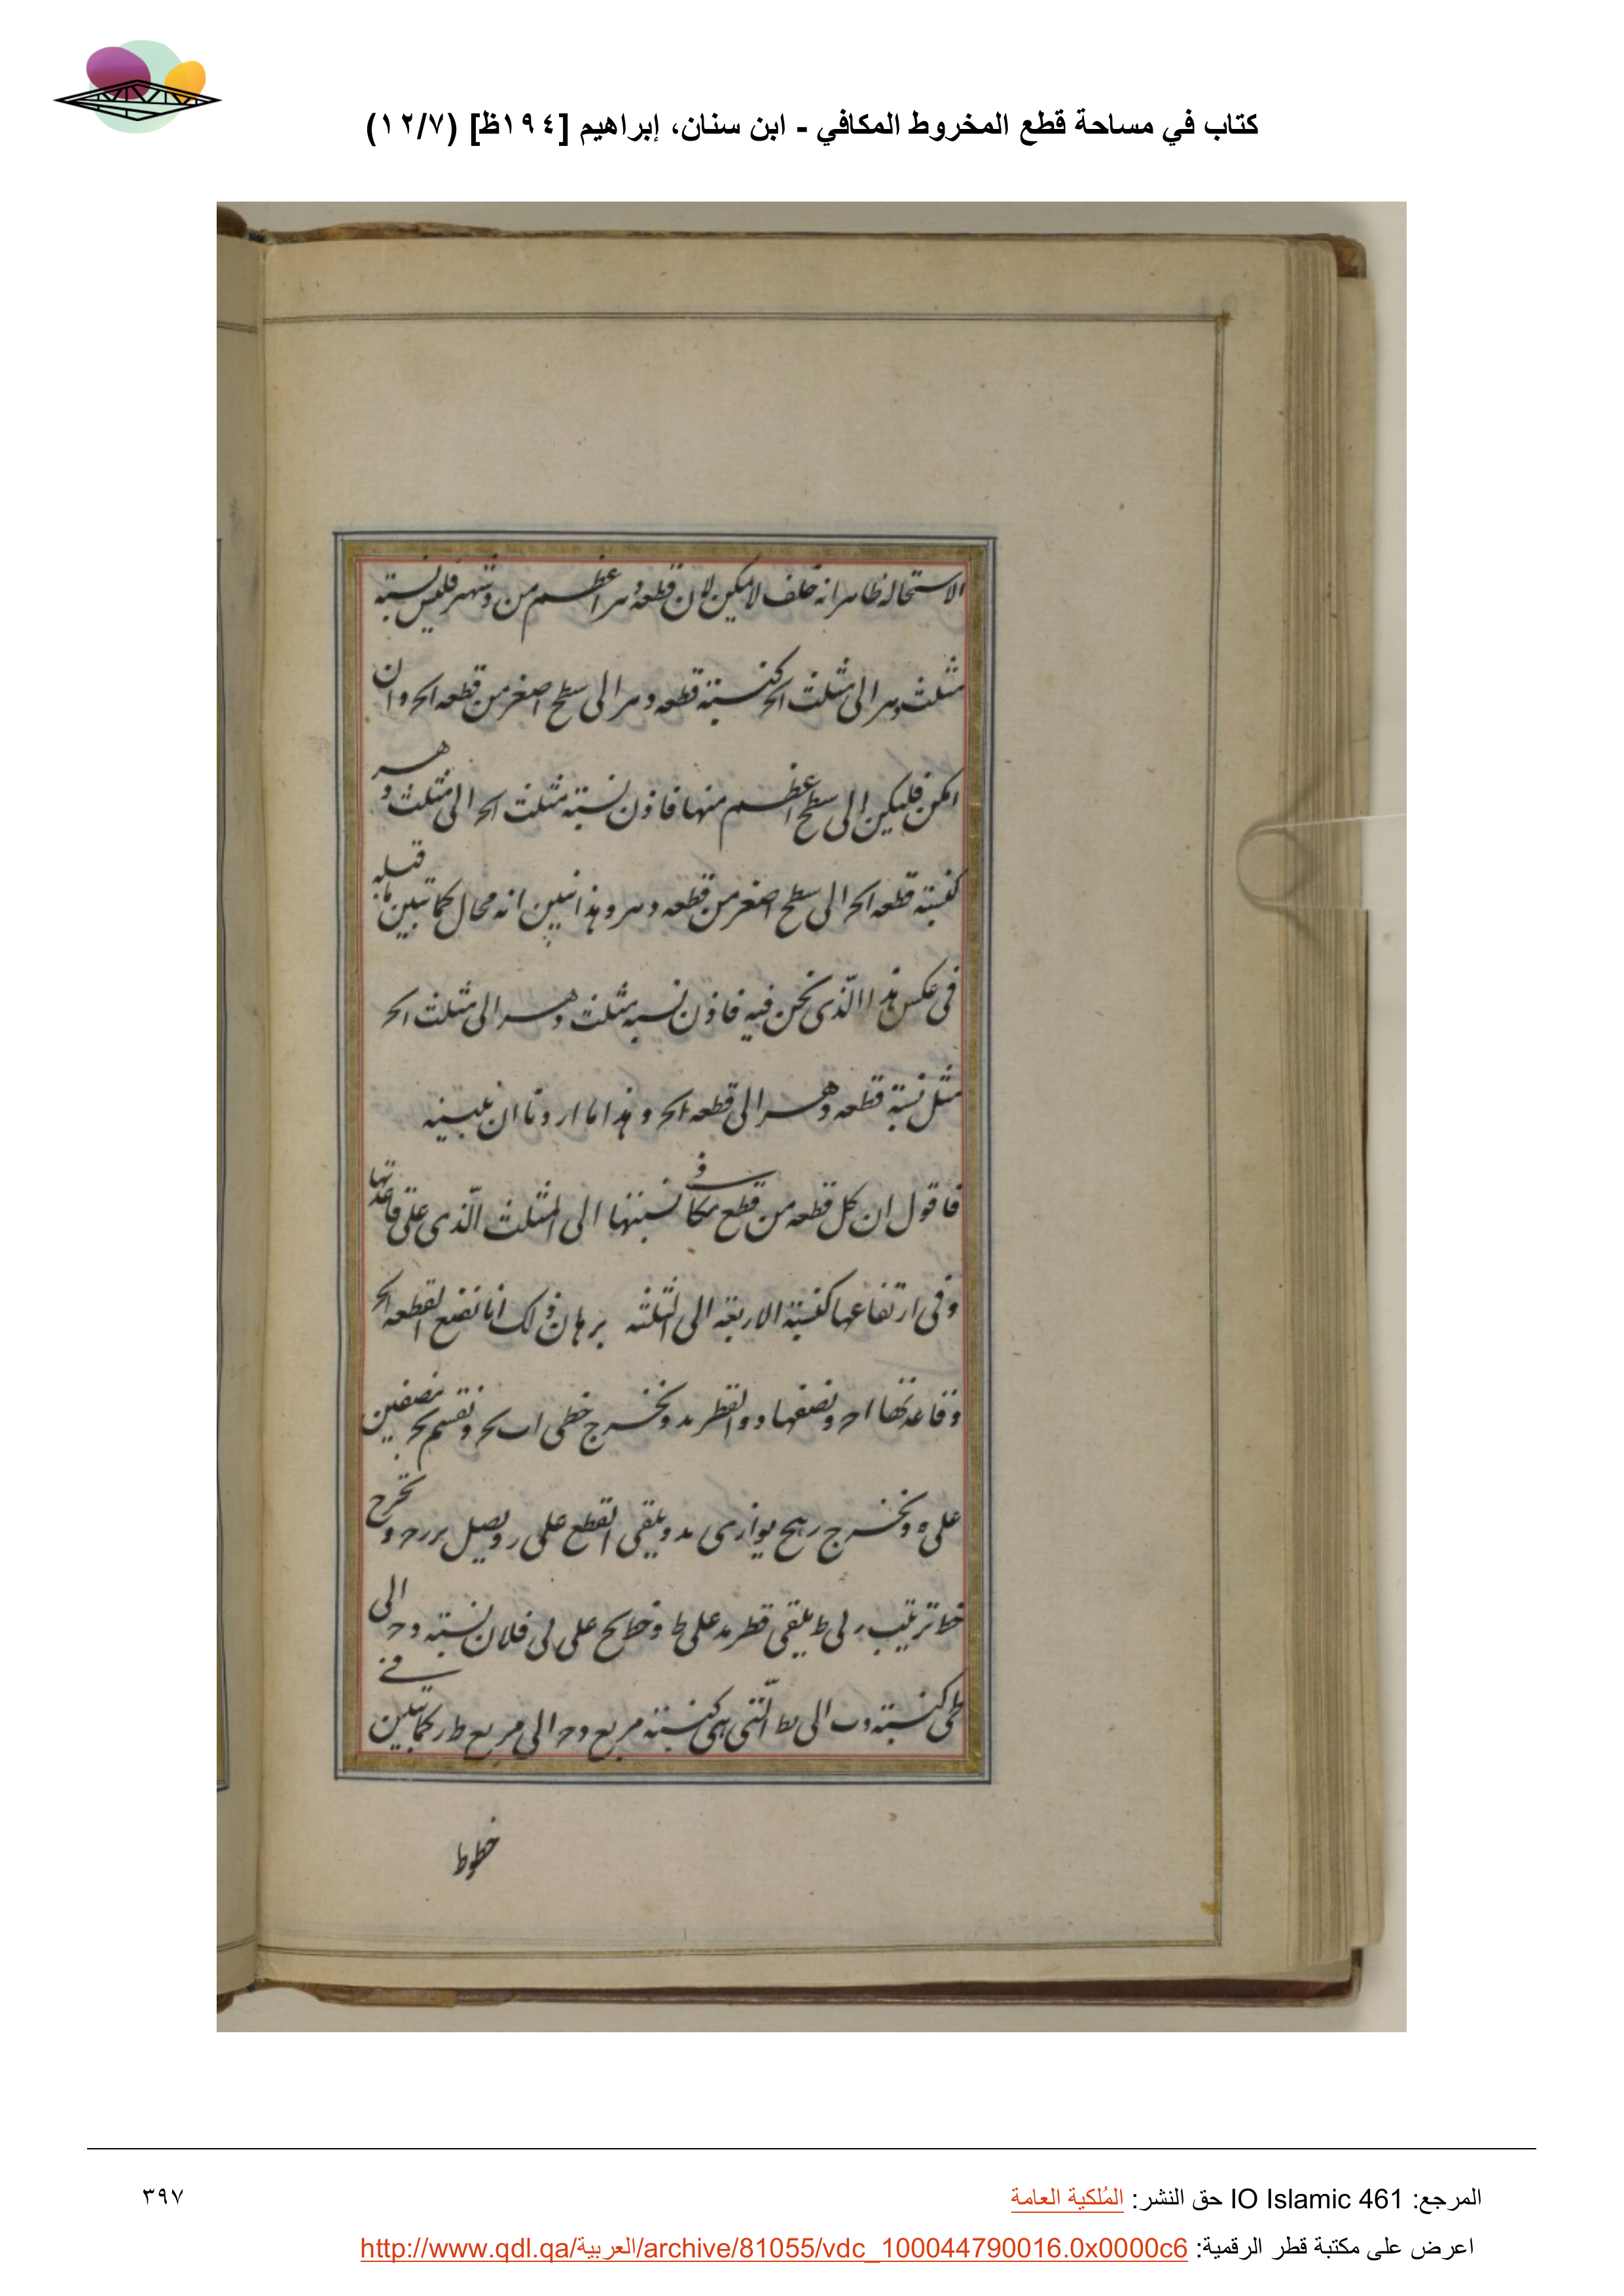 كتاب في مساحة قطع المخروط المكافي - ابن سنان، إبراهيم [١٩٤ظ] (١٢/٧)
الاستحاله ظاهر انه خلف لا يمكن لان قطعه وهر اعظم من وشهر فليس نسبة
مثلث وهر الى مثلث احر كنسبة قطعه وهر الى سطح اصغر من قطعه احر وان
امكن فليكن الى سطح اعظم منها فاذن نسبة مثلث احر الى مثلث وهر
كنسبة قطعه احر الى سطح اصغر من قطعه وهر وهذا نبين انه محال كما تبين ما قبله
فى عكس هذا الذى نحن فيه فاذن نسبه مثلث وهر الى مثلث احر
مثل نسبة قطعه وهر الى قطعه احر وهذا ما اردنا ان نبينه
فاقول ان كل قطعه من قطع مكافى نسبتها الى المثلث الذى على قاعدتها
وفى ارتفاعها كنسبة الاربعه الى الثلثه برهان ذلك انا نضع القطعه احر
وقاعدتها احر ونصفها د والقطر ىد ونخرج خطى اب بحر ونقسم بحر بنصفين
على ه ونخرج رهح يوازى ىد ويلقى القطع على ر ونصل ىر رح ونخرج
خط ترتيب رلى ط يلقى قطر ىد على ط وخط بح على لى فلان نسبة دح الى
طى كنسبة دب الى بط التى هى كنسبة مربع دح الى مربع طر كما تبين فى
خطوط
المرجع: IO Islamic 461 حق النشر: المُلكية العامة
٣٩٧
اعرض على مكتبة قطر الرقمية: http://www.qdl.qa/العربية/archive/81055/vdc_100044790016.0x0000c6